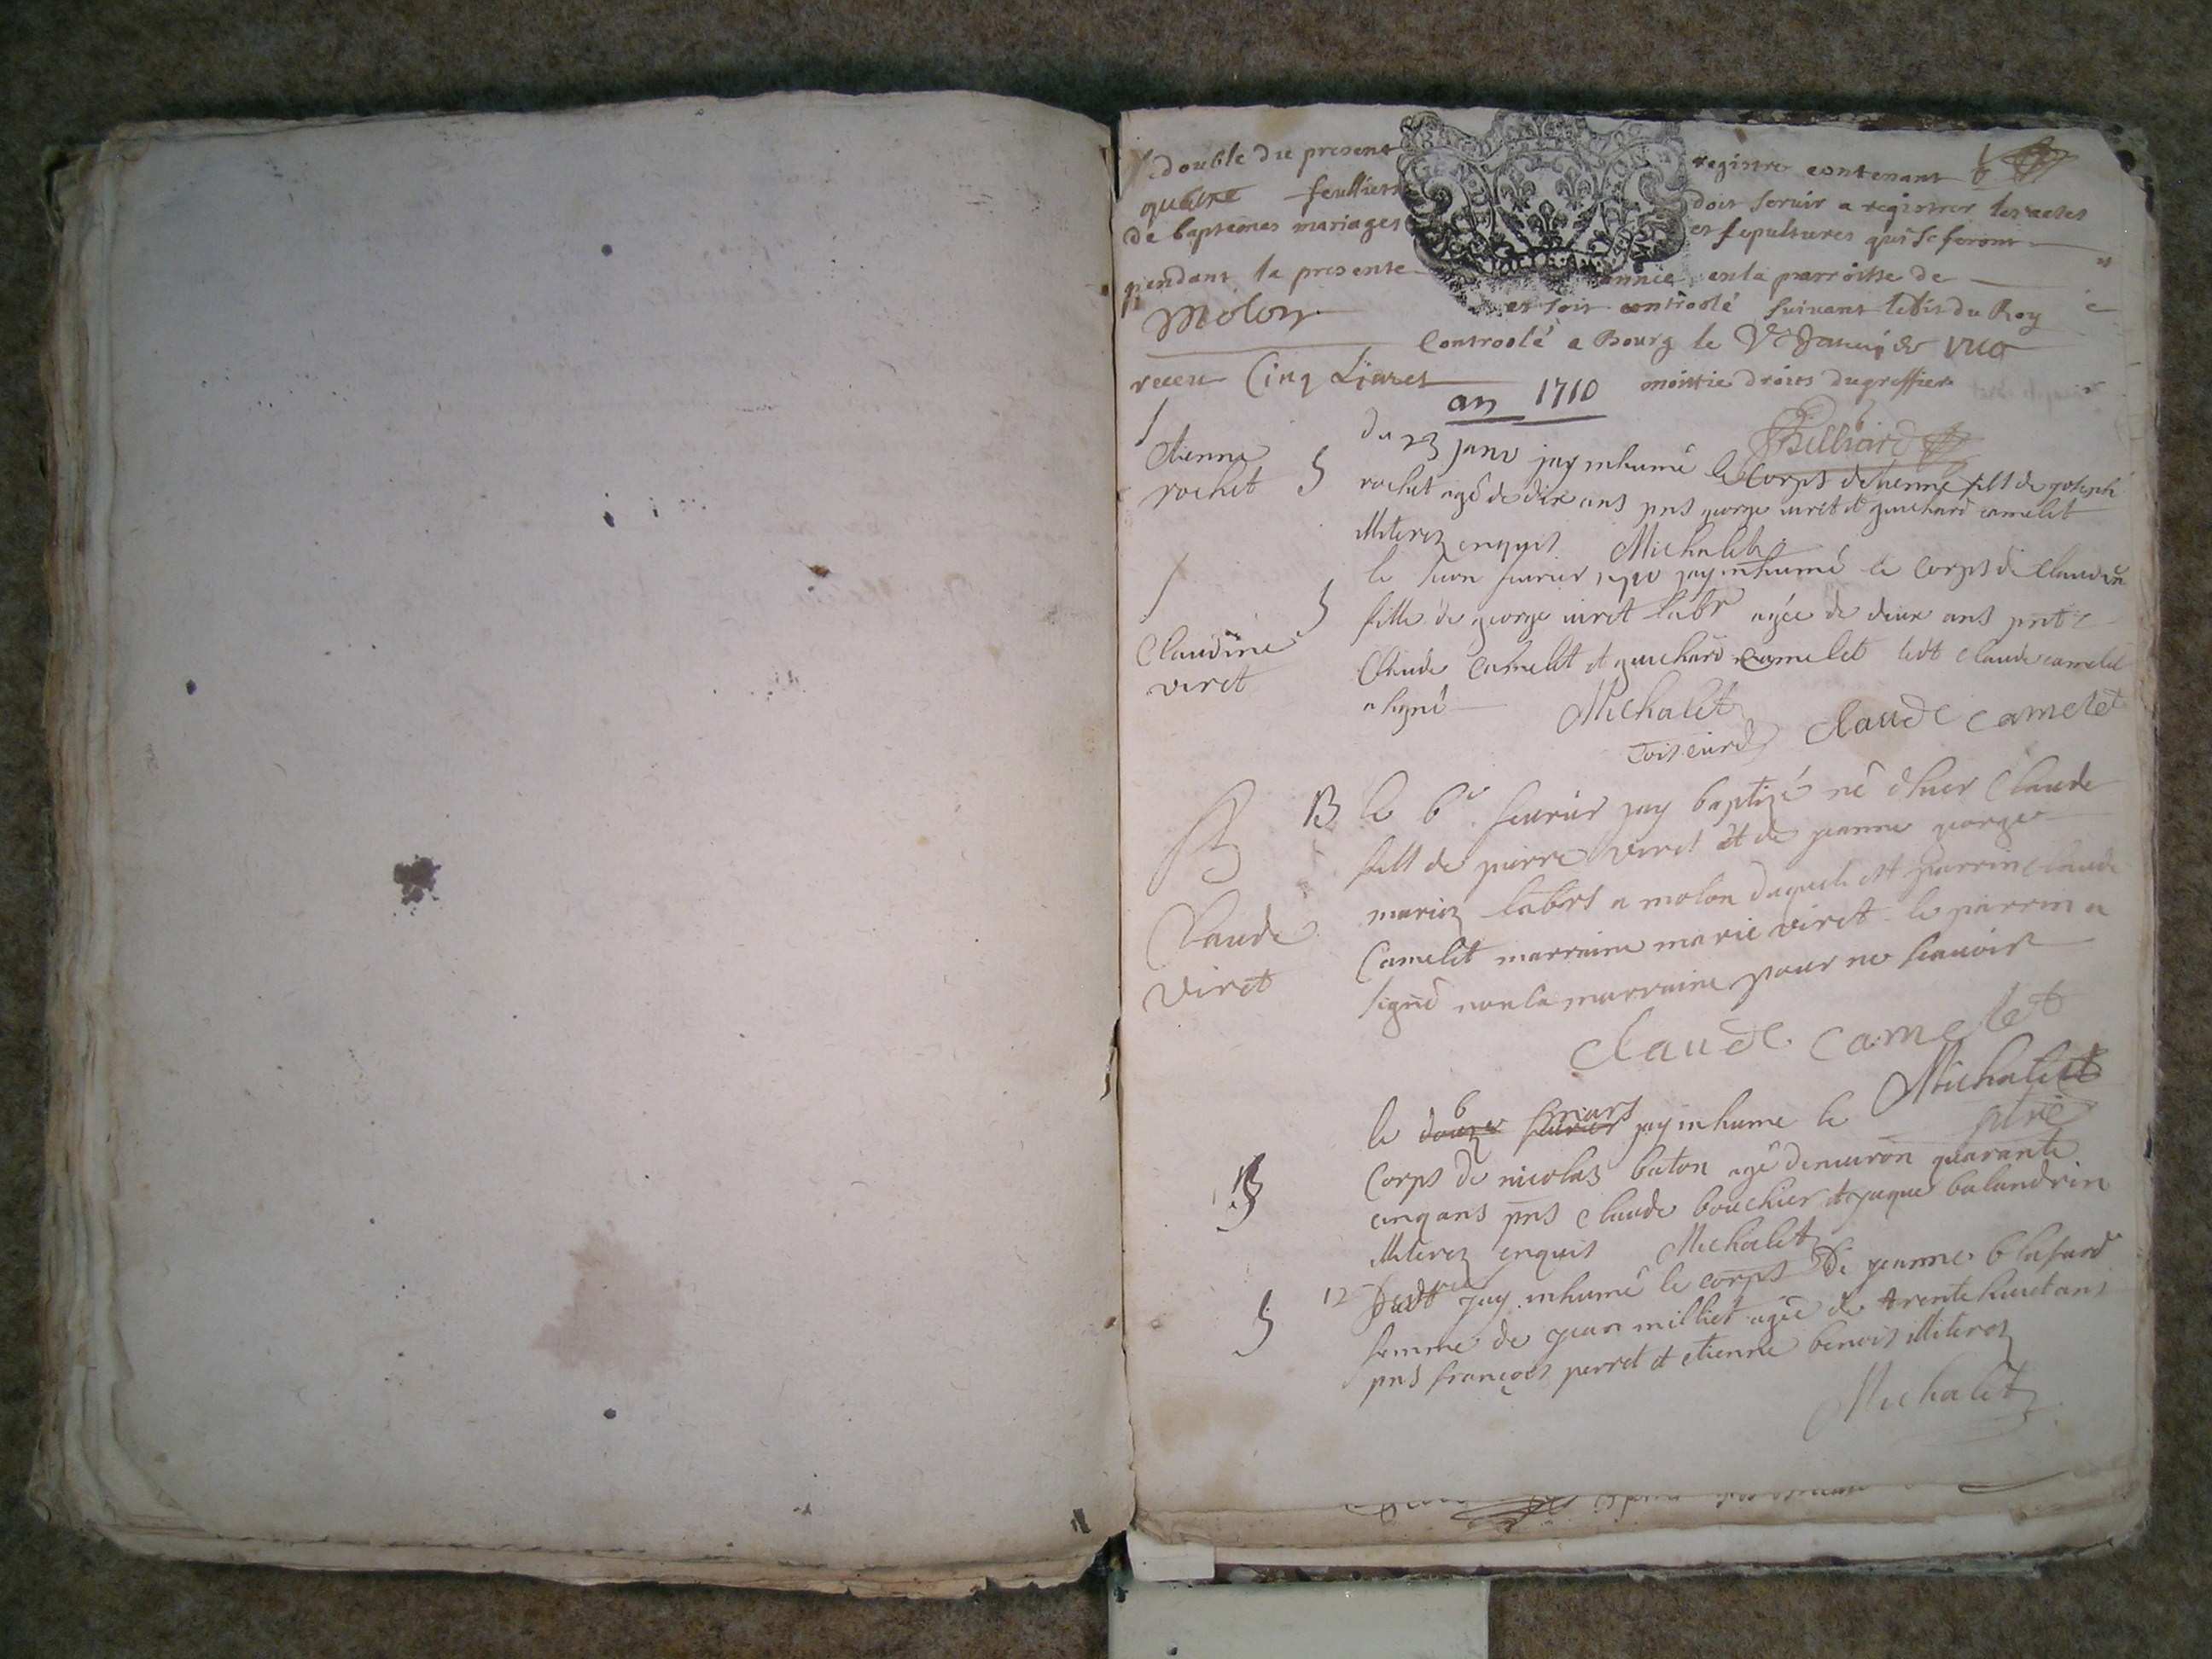 double du present registre contenant
quatre feulliets doit servir a registrer les actes
de baptemes mariages et sepultures qui se feront
pendant la presente année en la parroisse de
Molon et soit controolé suivant ledit du Roy
Controolé a Bourg le Ve Janvier
receu Cinq Livres moittie droits du greffier
an 1710
Billiard
etienne
rochet
S
du 23 janv jay inhumé le Corps detienne fils de joseph
rochet agé de dix ans pns george viret et guichard camelet
illiterez enquis Michalet
Claudine
viret
S
le fevrier 1710 jay inhumé le Corps de Claudine
fille de george viret labr agée de deux ans pnts
Claude Camelet et guichard Camelet ledt claude camelet
a signé Michalet
curé Claude camelet
B
Claude
viret
B le 6e fevrier jay baptizé né dhier Claude
fils de pierre viret et de jeanne george
mariez labrs a molon duquel est parrin claude
Camelet marraine marie viret le parrin a
signé non la marraine pour ne scavoir
Claude camelet
Michalet
le douze fevrier 6 mars jay inhumé le
ptre
Corps de nicolas baton agé denviron quarante
cinq ans pns claude bouchier et jaque balandrin
illiterez enquis Michalet
S
12 dudt jay inhumé le corps de jeanne blafard
femme de jean milliet agée de trente huict ans
pns françois perret et etienne benoit illiterez
Michalet